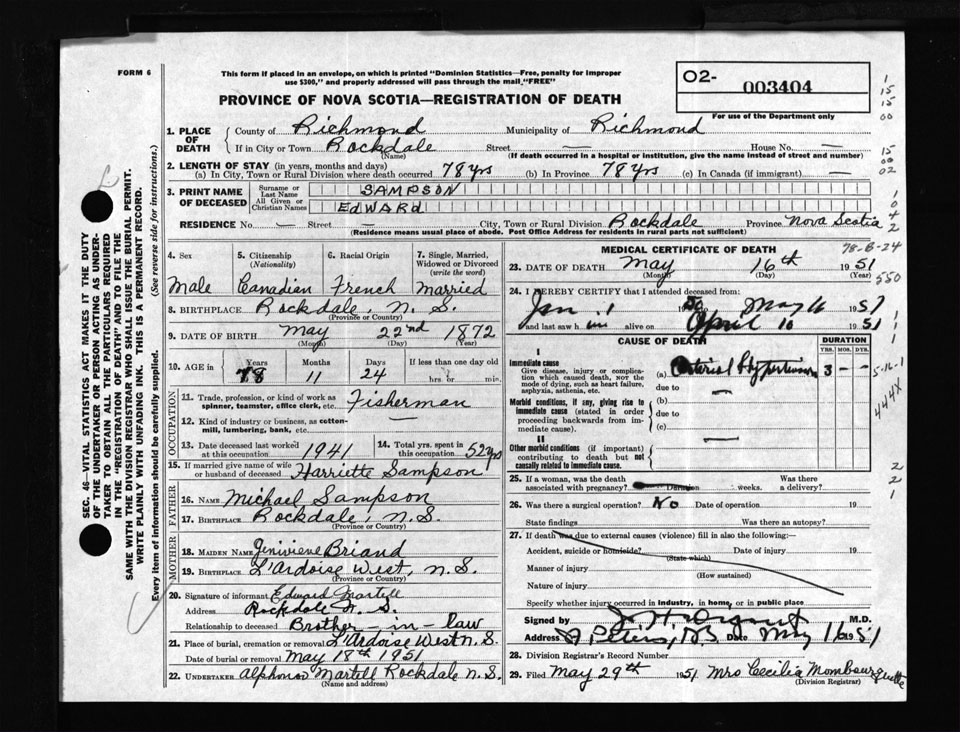 FORM 6
This form if placed in an envelope, on which is printed "Dominion Statistics—Free, penalty for improper
use $300," and properly addressed will pass through the mail "FREE"
O2- 003404
For use of the Department only
PROVINCE OF NOVA SCOTIA—REGISTRATION OF DEATH
1. PLACE OF DEATH
County of Richmond Municipality of Richmond
If in City or Town Rockdale Street — House No. —
(Name) (If death occurred in a hospital or institution, give the name instead of street and number)
2. LENGTH OF STAY (in years, months and days)
(a) In City, Town or Rural Division where death occurred 78 yrs (b) In Province 78 yrs (c) In Canada (if immigrant) —
3. PRINT NAME OF DECEASED
Surname or Last Name SAMPSON
All Given or Christian Names EDWARD
RESIDENCE No. — Street — City, Town or Rural Division Rockdale Province Nova Scotia
(Residence means usual place of abode. Post Office Address for residents in rural parts not sufficient)
4. Sex
Male
5. Citizenship (Nationality)
Canadian
6. Racial Origin
French
7. Single, Married, Widowed or Divorced (write the word)
Married
8. BIRTHPLACE Rockdale, N. S.
(Province or Country)
9. DATE OF BIRTH May 22nd 1872
(Month) (Day) (Year)
10. AGE in Years Months Days If less than one day old
78 11 24 hrs or min.
OCCUPATION
11. Trade, profession, or kind of work as
spinner, teamster, office clerk, etc. Fisherman
12. Kind of industry or business, as cotton-
mill, lumbering, bank, etc. —
13. Date deceased last worked
at this occupation 1941
14. Total yrs. spent in
this occupation 52 yrs
15. If married give name of wife
or husband of deceased Harriette Sampson
FATHER
16. NAME Michael Sampson
17. BIRTHPLACE Rockdale, N.S.
(Province or Country)
MOTHER
18. MAIDEN NAME Jeniviene Briand
19. BIRTHPLACE L'Ardoise West, N.S.
(Province or Country)
20. Signature of informant Edward Martell
Address Rockdale N. S.
Relationship to deceased Brother-in-law
21. Place of burial, cremation or removal L'Ardoise West N.S
Date of burial or removal May 18th 1951
22. UNDERTAKER Alphonos Martell Rockdale N.S.
(Name and address)
MEDICAL CERTIFICATE OF DEATH
78-B-24
23. DATE OF DEATH May 16th 1951
(Month) (Day) (Year)
550
24. I HEREBY CERTIFY that I attended deceased from:
Jan 1 50 May 16 1951
and last saw h im alive on April 10 1951
CAUSE OF DEATH DURATION
YRS. MOS. DYS.
I
Immediate cause
Give disease, injury or complica-
tion which caused death, not the
mode of dying, such as heart failure,
asphyxia, asthenia, etc.
(a) Arterial Hypertension 3 — —
due to
Morbid conditions, if any, giving rise to
immediate cause (stated in order
proceeding backwards from im-
mediate cause).
(b)
due to
(c)
II
Other morbid conditions (if important)
contributing to death but not
causally related to immediate cause.
5-16-1
444X
25. If a woman, was the death
associated with pregnancy? Duration weeks. Was there
a delivery?
26. Was there a surgical operation? No Date of operation 19
State findings Was there an autopsy?
27. If death was due to external causes (violence) fill in also the following:—
Accident, suicide or homicide? Date of injury 19
(State which)
Manner of injury
(How sustained)
Nature of injury
Specify whether injury occurred in industry, in home, or in public place
Signed by M.D.
Address St Peters, N.S. Date May 16 1951
28. Division Registrar's Record Number
29. Filed May 29th 1951 Mrs Cecilia Mombourquette
(Division Registrar)
SEC. 46—VITAL STATISTICS ACT MAKES IT THE DUTY
OF THE UNDERTAKER OR PERSON ACTING AS UNDER-
TAKER TO OBTAIN ALL THE PARTICULARS REQUIRED
IN THE "REGISTRATION OF DEATH" AND TO FILE THE
SAME WITH THE DIVISION REGISTRAR WHO SHALL ISSUE THE BURIAL PERMIT.
WRITE PLAINLY WITH UNFADING INK. THIS IS A PERMANENT RECORD.
Every item of information should be carefully supplied. (See reverse side for instructions.)